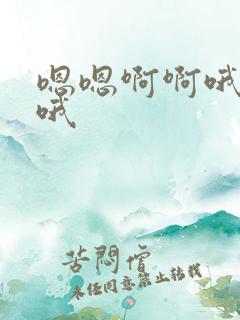 嗯嗯啊啊哦
哦
苦悶僧
未经同意禁止转载